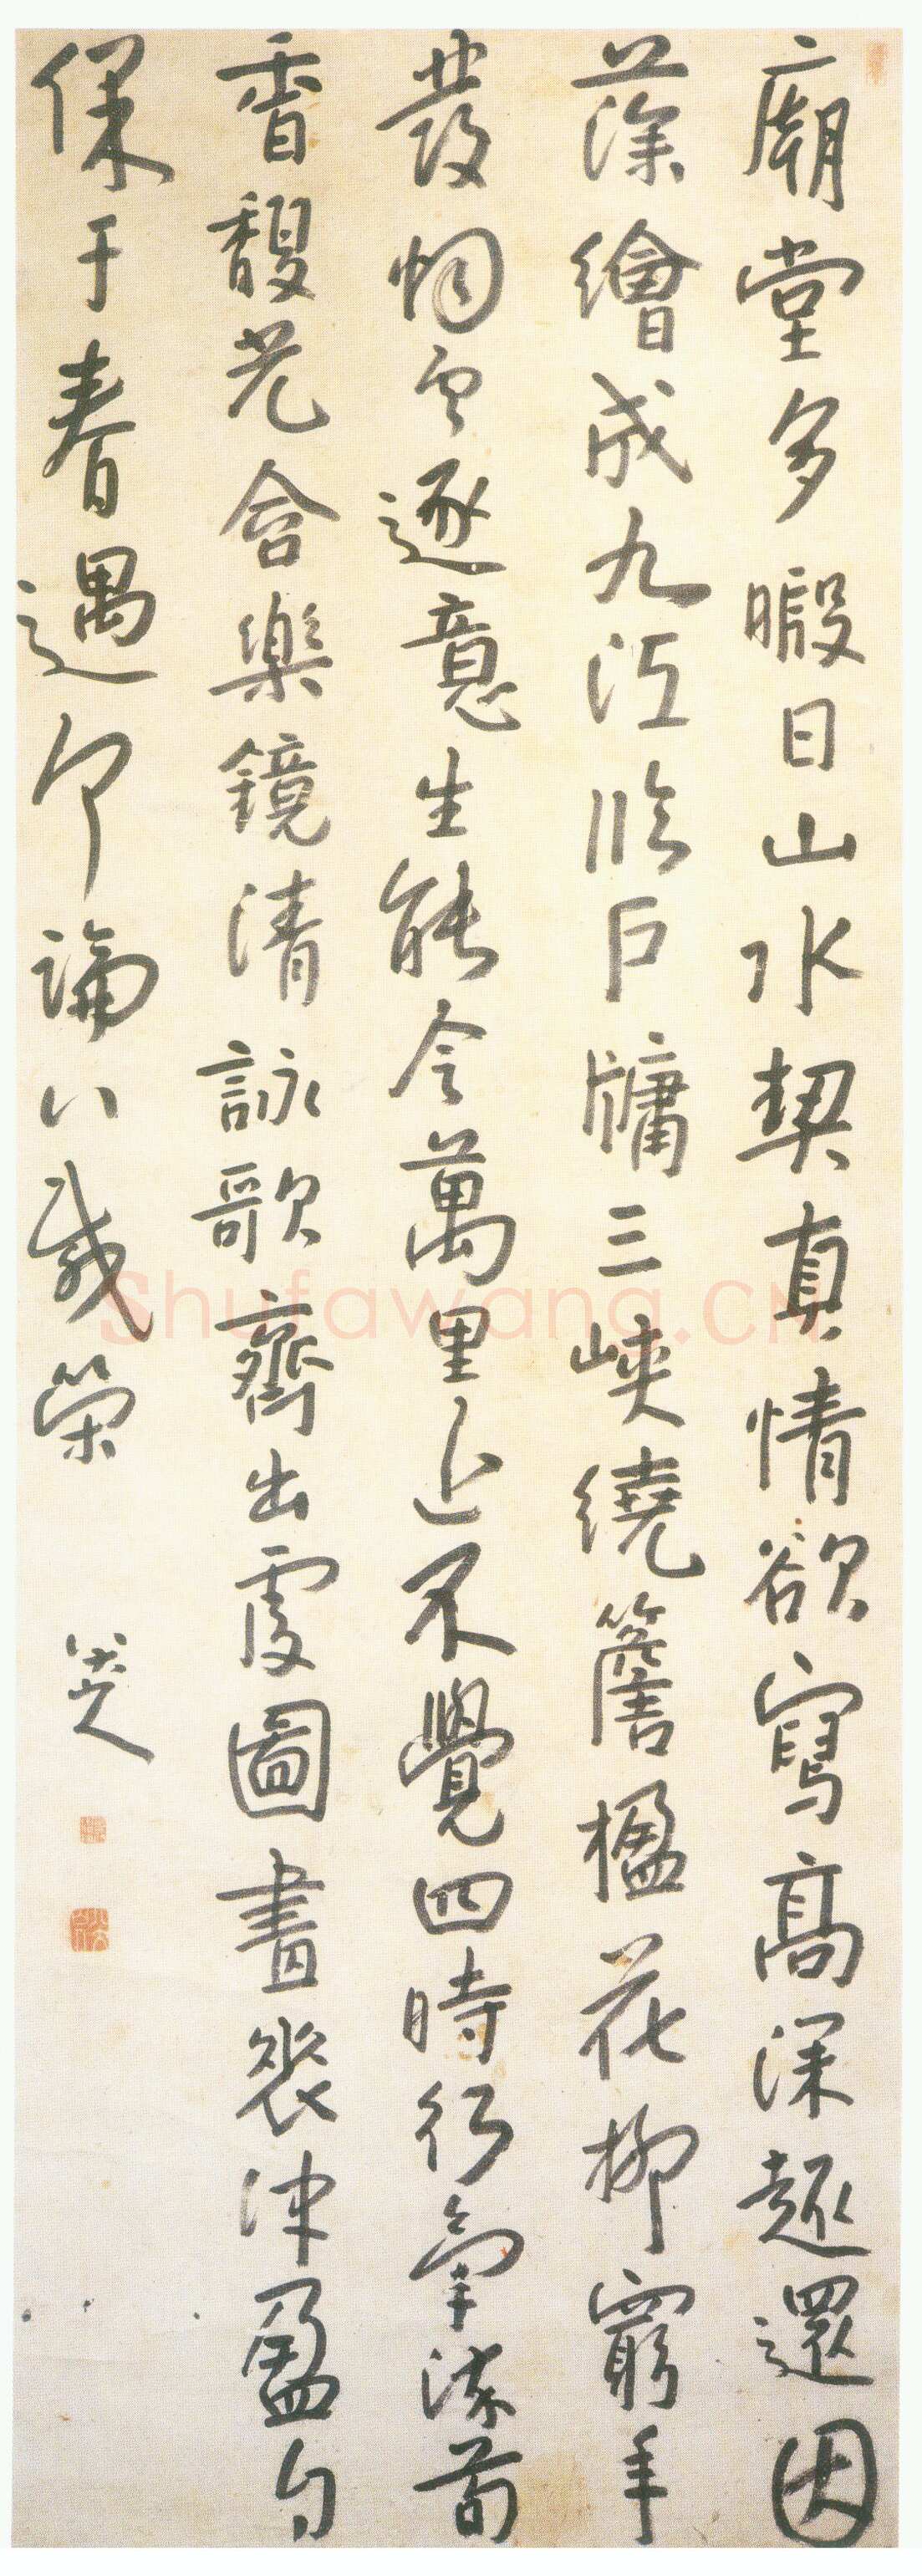 廟堂多暇日山水契真情欲寫高深趣還因
藻繪成九江臨戶牖三峽繞簷楹花柳窮年
發烟雲逐意生能令萬里近不覺四時行氣染荀
香馥光含樂鏡清詠歌齊出處圖畫表沖盈自
保千春遇何論八載榮
八大山人
Shufawang.CN